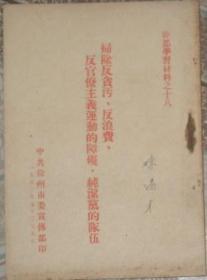 幹部學習材料之十八
掃除反貪污、反浪費、
反官僚主義運動的障礙，純潔黨的隊伍
中共徐州市委宣傳部印